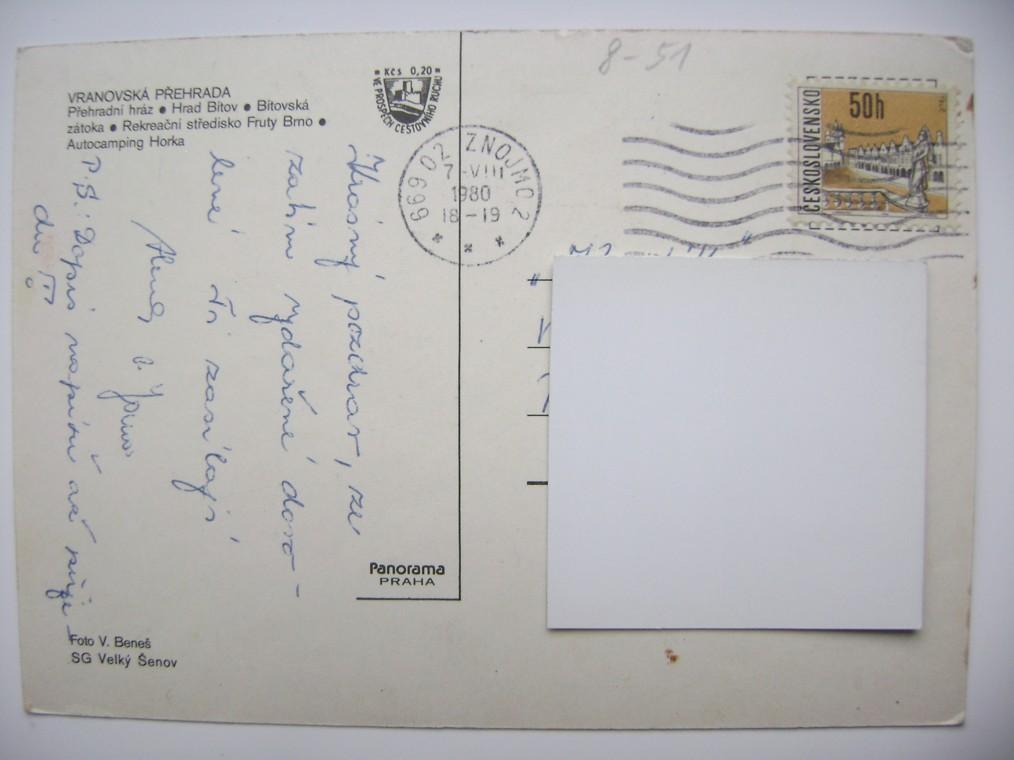 VRANOVSKÁ PŘEHRADA
Přehradní hráz ● Hrad Bítov ● Bítovská
zátoka ● Rekreační středisko Fruty Brno ●
Autocamping Horka
Kčs 0,20
VE PROSPĚCH CESTOVNÍHO RUCHU
8-51
669 02 ZNOJMO 2
7.-VIII
1980
18-19
ČESKOSLOVENSKO
50h
Krásný pozdrav, ze
zatím vydařené dovo-
lené Ti zasílají
Alena a
P.S.: Dopis napíši až přije-
du
Panorama
PRAHA
Foto V. Beneš
SG Velký Šenov